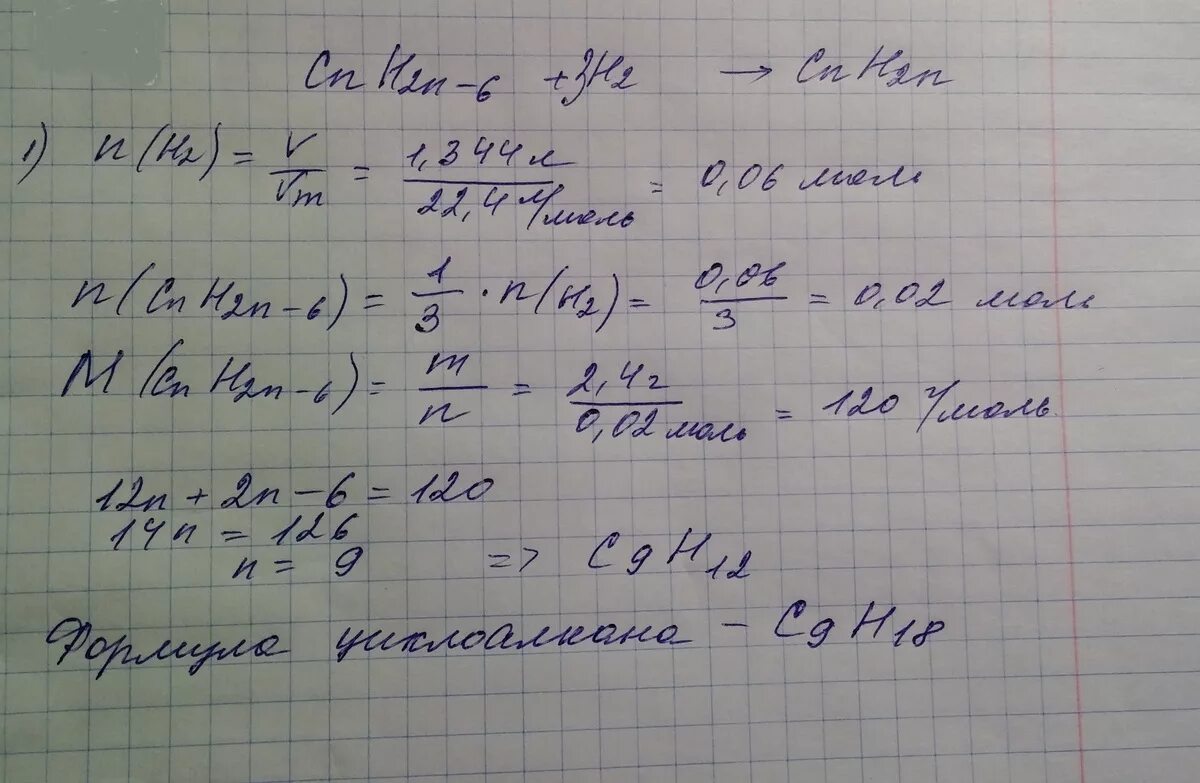 CnH2n-6 + 3H2 → CnH2n
1) n(H2) = V/Vm = 1,344 л / 22,4 л/моль = 0,06 моль
n(CnH2n-6) = 1/3 · n(H2) = 0,06/3 = 0,02 моль
M(CnH2n-6) = m/n = 2,4 г / 0,02 моль = 120 г/моль
12n + 2n - 6 = 120
14n = 126
n = 9 => C9H12
Формула циклоалкана - C9H18